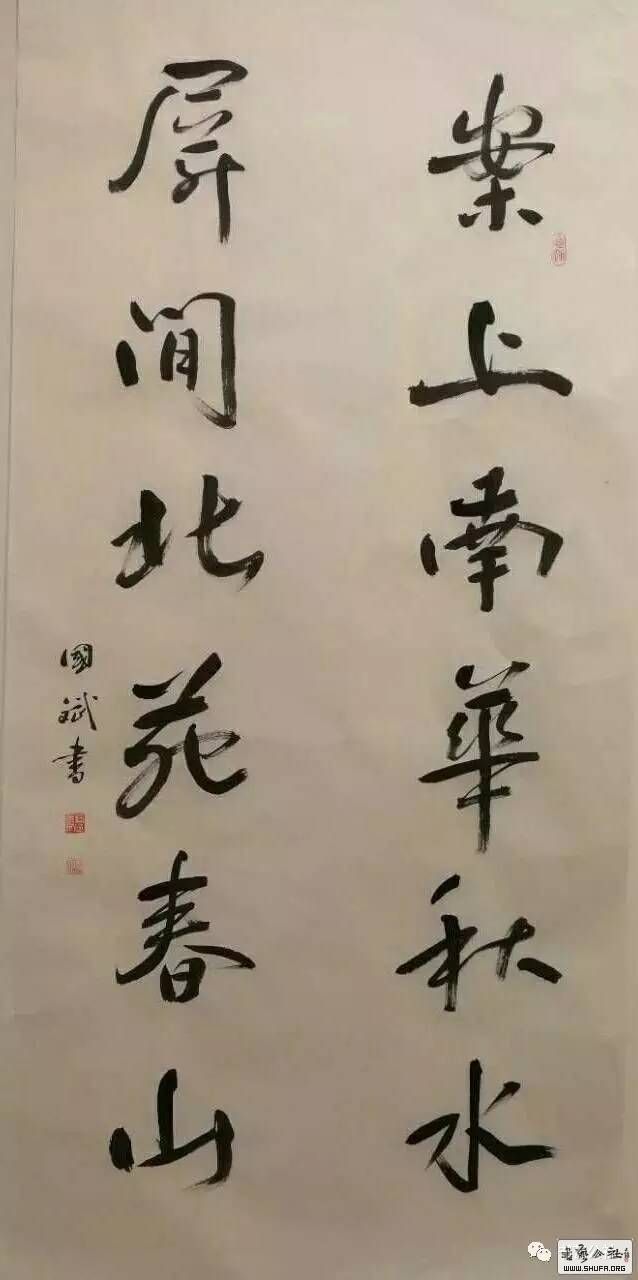 案上南華秋水
屏間北苑春山
國斌書
WWW.SHUFA.ORG